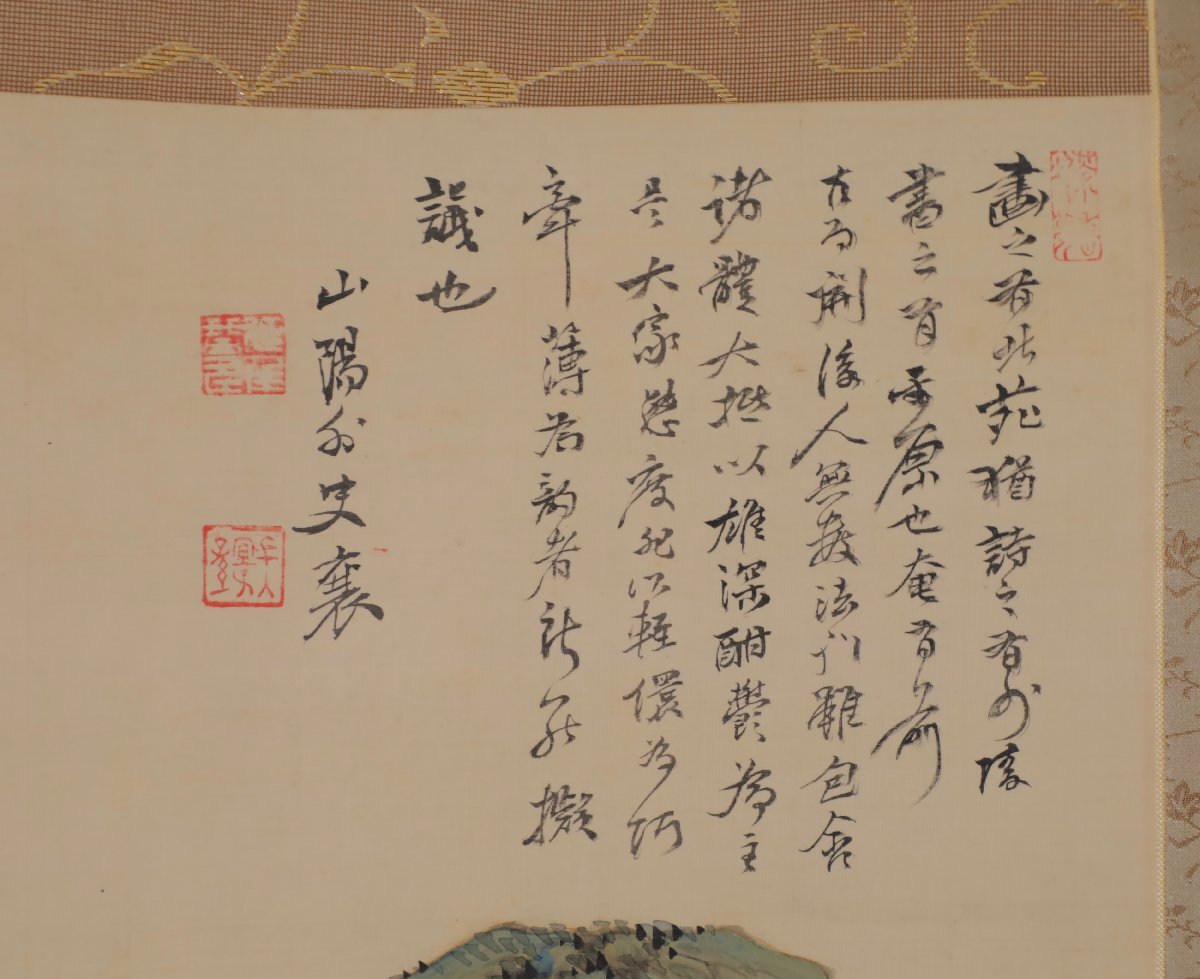 畫之有北苑猶詩之有少陵
書之有平原也奄有前
古而開後人無數法門雖包含
諸體大抵以雄深酣鬱為主
是大家態度非以輕儇為巧
率薄為韵者所能擬
議也
山陽外史襄